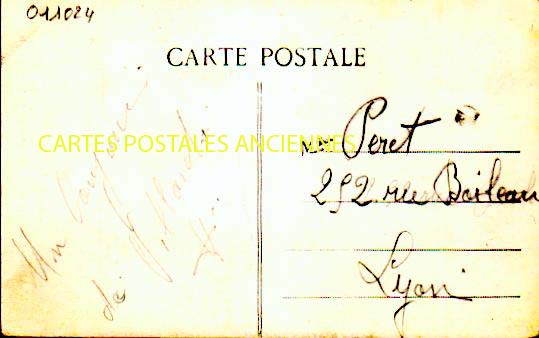 011024
CARTE POSTALE
CARTES POSTALES ANCIENNES
Un
de
Peret
252 rue Boileau
Lyon